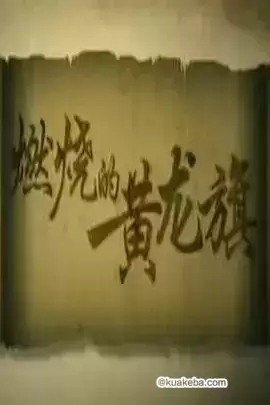 燃烧的
黄龙旗
@kuakeba.com